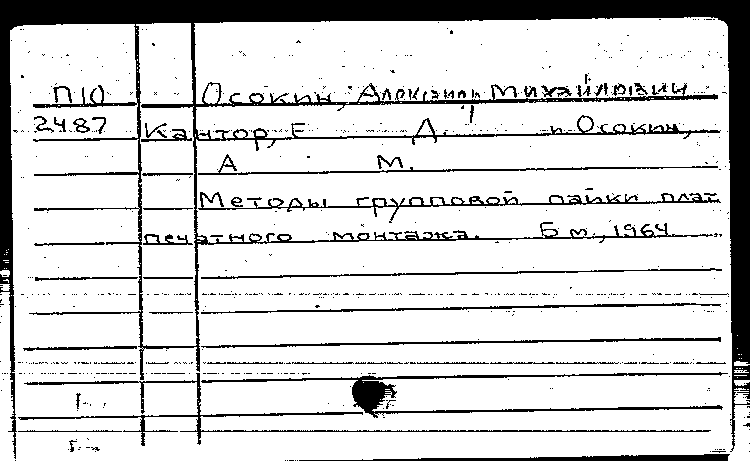 П10 Осокин, Александр Михайлович
2487 Кантор, Е Д. и Осокин,
А М.
Методы групповой пайки плат
печатного монтажа. Б м., 1964